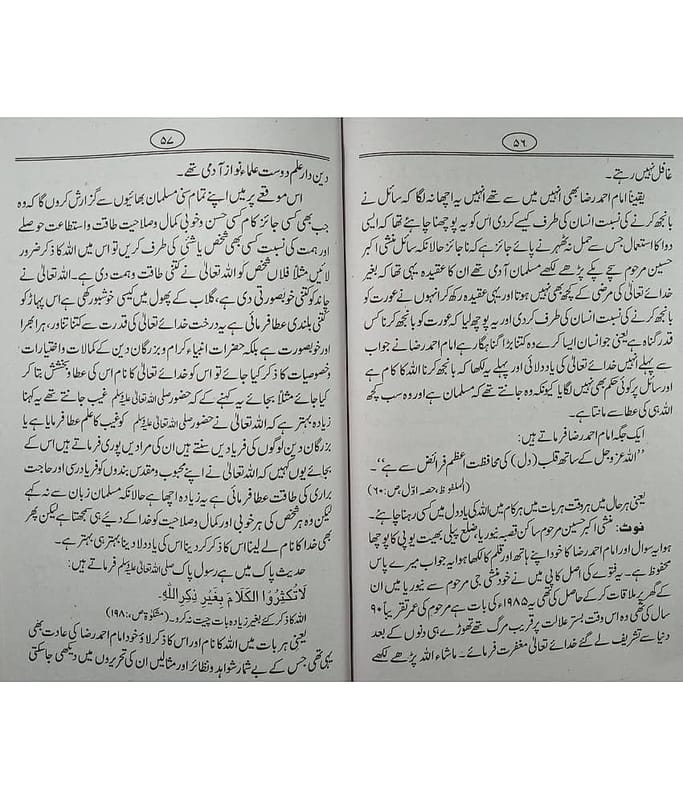 ۵۶
غافل نہیں رہتے۔
یقیناً امام احمد رضا بھی انہیں میں سے تھے انہیں یہ اچھا نہ لگا کہ سائل نے
بانجھ کرنے کی نسبت انسان کی طرف کیسے کر دی اس کو یہ پوچھنا چاہئے تھا کہ ایسی
دوا کا استعمال جس سے حمل نہ ٹھہرنے پائے جائز ہے کہ ناجائز حالانکہ سائل منشی اکبر
حسین مرحوم سچے پکے پڑھے لکھے مسلمان آدمی تھے ان کا عقیدہ یہی تھا کہ بغیر
خدائے تعالیٰ کی مرضی کے کچھ بھی نہیں ہوتا اور یہی عقیدہ رکھ کر انہوں نے عورت کو
بانجھ کرنے کی نسبت انسان کی طرف کر دی اور یہ پوچھ لیا کہ عورت کو بانجھ کرنا کس
قدر گناہ ہے یعنی جو انسان ایسا کرے وہ کتنا بڑا گناہگار ہے امام احمد رضا نے جواب
سے پہلے انہیں خدائے تعالیٰ کی یاد دلائی اور پہلے یہ لکھا کہ بانجھ کرنا اللہ کا کام ہے
اور سائل پر کوئی حکم بھی نہیں لگایا کیونکہ وہ جانتے تھے کہ مسلمان ہے اور وہ سب کچھ
اللہ ہی کی عطا سے مانتا ہے۔
ایک جگہ امام احمد رضا فرماتے ہیں:
’’اللہ عزوجل کے ساتھ قلب (دل) کی محافظت اعظم فرائض سے ہے‘‘۔
(الملفوظ، حصہ اول، ص: ۶۰)
یعنی ہر حال میں ہر وقت ہر بات میں ہر کام میں اللہ کی یاد دل میں کسی رہنا چاہئے۔
نوٹ: منشی اکبر حسین مرحوم ساکن قصبہ نیوریا، ضلع پیلی بھیت یوپی کا پوچھا
ہوا یہ سوال اور امام احمد رضا کا خود اپنے ہاتھ اور قلم کا لکھا ہوا یہ جواب میرے پاس
محفوظ ہے۔ یہ فتوے کی اصل کاپی میں نے خود منشی جی مرحوم سے نیوریا میں ان
کے گھر پر ملاقات کر کے حاصل کی تھی یہ ۱۹۸۵ء کی بات ہے مرحوم کی عمر تقریباً ۹۰
سال کی تھی وہ اس وقت بستر علالت پر قریب مرگ تھے تھوڑے ہی دنوں کے بعد
دنیا سے تشریف لے گئے خدائے تعالیٰ مغفرت فرمائے۔ ماشاء اللہ پڑھے لکھے
۵۷
دین دار علم دوست علماء نواز آدمی تھے۔
اس موقعے پر میں اپنے تمام سنی مسلمان بھائیوں سے گزارش کروں گا کہ وہ
جب بھی کسی جائز کام کسی حسن و خوبی کمال و صلاحیت طاقت و استطاعت حوصلے
اور ہمت کی نسبت کسی بھی شخص یا شئی کی طرف کریں تو اس میں اللہ کا ذکر ضرور
لائیں مثلاً فلاں شخص کو اللہ تعالیٰ نے کتنی طاقت و ہمت دی ہے۔ اللہ تعالیٰ نے
چاند کو کتنی خوبصورتی دی ہے، گلاب کے پھول میں کیسی خوشبو رکھی ہے اس پہاڑ کو
کتنی بلندی عطا فرمائی ہے یہ درخت خدائے تعالیٰ کی قدرت سے کتنا تناور، ہرا بھرا
اور خوبصورت ہے بلکہ حضرات انبیاء کرام و بزرگان دین کے کمالات و اختیارات
و خصوصیات کا ذکر کیا جائے تو اس کو خدائے تعالیٰ کا نام اس کی عطا و بخشش بتا کر
کیا جائے مثلاً بجائے یہ کہنے کے کہ حضور صلی اللہ تعالیٰ علیہ وسلم غیب جانتے تھے یہ کہنا
زیادہ بہتر ہے کہ اللہ تعالیٰ نے حضور صلی اللہ تعالیٰ علیہ وسلم کو غیب کا علم عطا فرمایا ہے یا
بزرگان دین لوگوں کی فریادیں سنتے ہیں ان کی مرادیں پوری فرماتے ہیں اس کے
بجائے یوں کہیں کہ اللہ تعالیٰ نے اپنے محبوب و مقدس بندوں کو فریاد رسی اور حاجت
براری کی طاقت عطا فرمائی ہے یہ زیادہ اچھا ہے حالانکہ مسلمان زبان سے نہ کہے
لیکن وہ ہر شخص کی ہر خوبی اور کمال و صلاحیت کو خدا کے دئیے ہی سمجھتا ہے لیکن پھر
بھی خدا کا نام لے لینا اس کا ذکر کر دینا اس کی یاد دلا دینا بہتر ہی بہتر ہے۔
حدیث پاک میں ہے رسول پاک صلی اللہ تعالیٰ علیہ وسلم فرماتے ہیں:
لَا تُكْثِرُوا الْكَلَامَ بِغَيْرِ ذِكْرِ اللّٰهِ۔
اللہ کا ذکر کے بغیر زیادہ بات چیت نہ کرو۔ (مشکوٰۃ ص، ۱۹۸)
یعنی ہر بات میں اللہ کا نام اور اس کا ذکر لاؤ خود امام احمد رضا کی عادت بھی
یہی تھی جس کے بے شمار شواہد و نظائر اور مثالیں ان کی تحریروں میں دیکھی جا سکتی